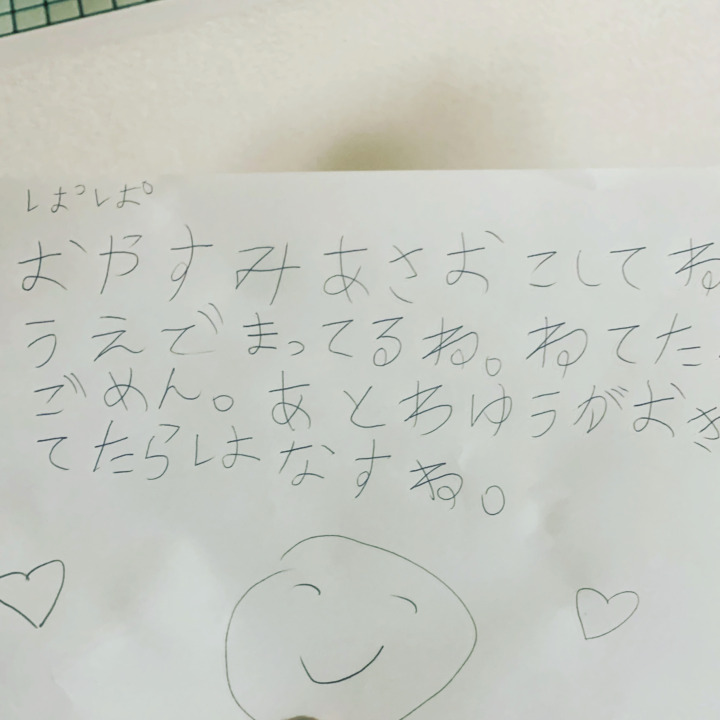 ぱぱ
おやすみあさおこしてね
うえでまってるね。ねてた
ごめん。あとわゆうがおき
てたらはなすね。